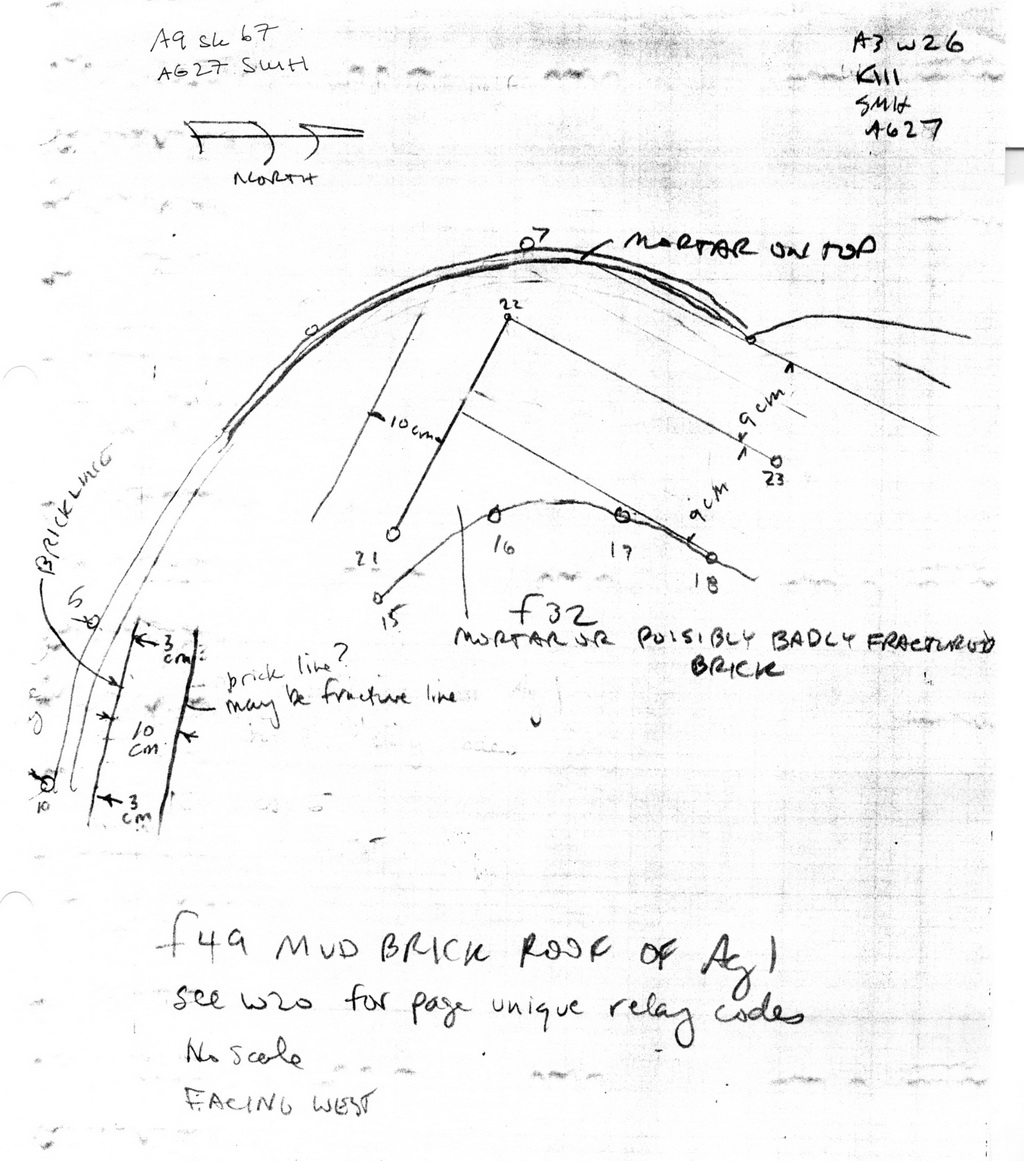 A9 sk 67
AG27 SMH
A3 w26
K111
SMH
AG27
NORTH
7
MORTAR ON TOP
22
10cm
9cm
23
9cm
BRICK LINE
21
16
17
18
15
f32
MORTAR OR POISIBLY BADLY FRACTURED
BRICK
5
3
cm
brick line?
may be fracture line
10
cm
3
cm
10
f49 MUD BRICK ROOF OF Ag1
see w20 for page unique relay codes
No scale
FACING WEST